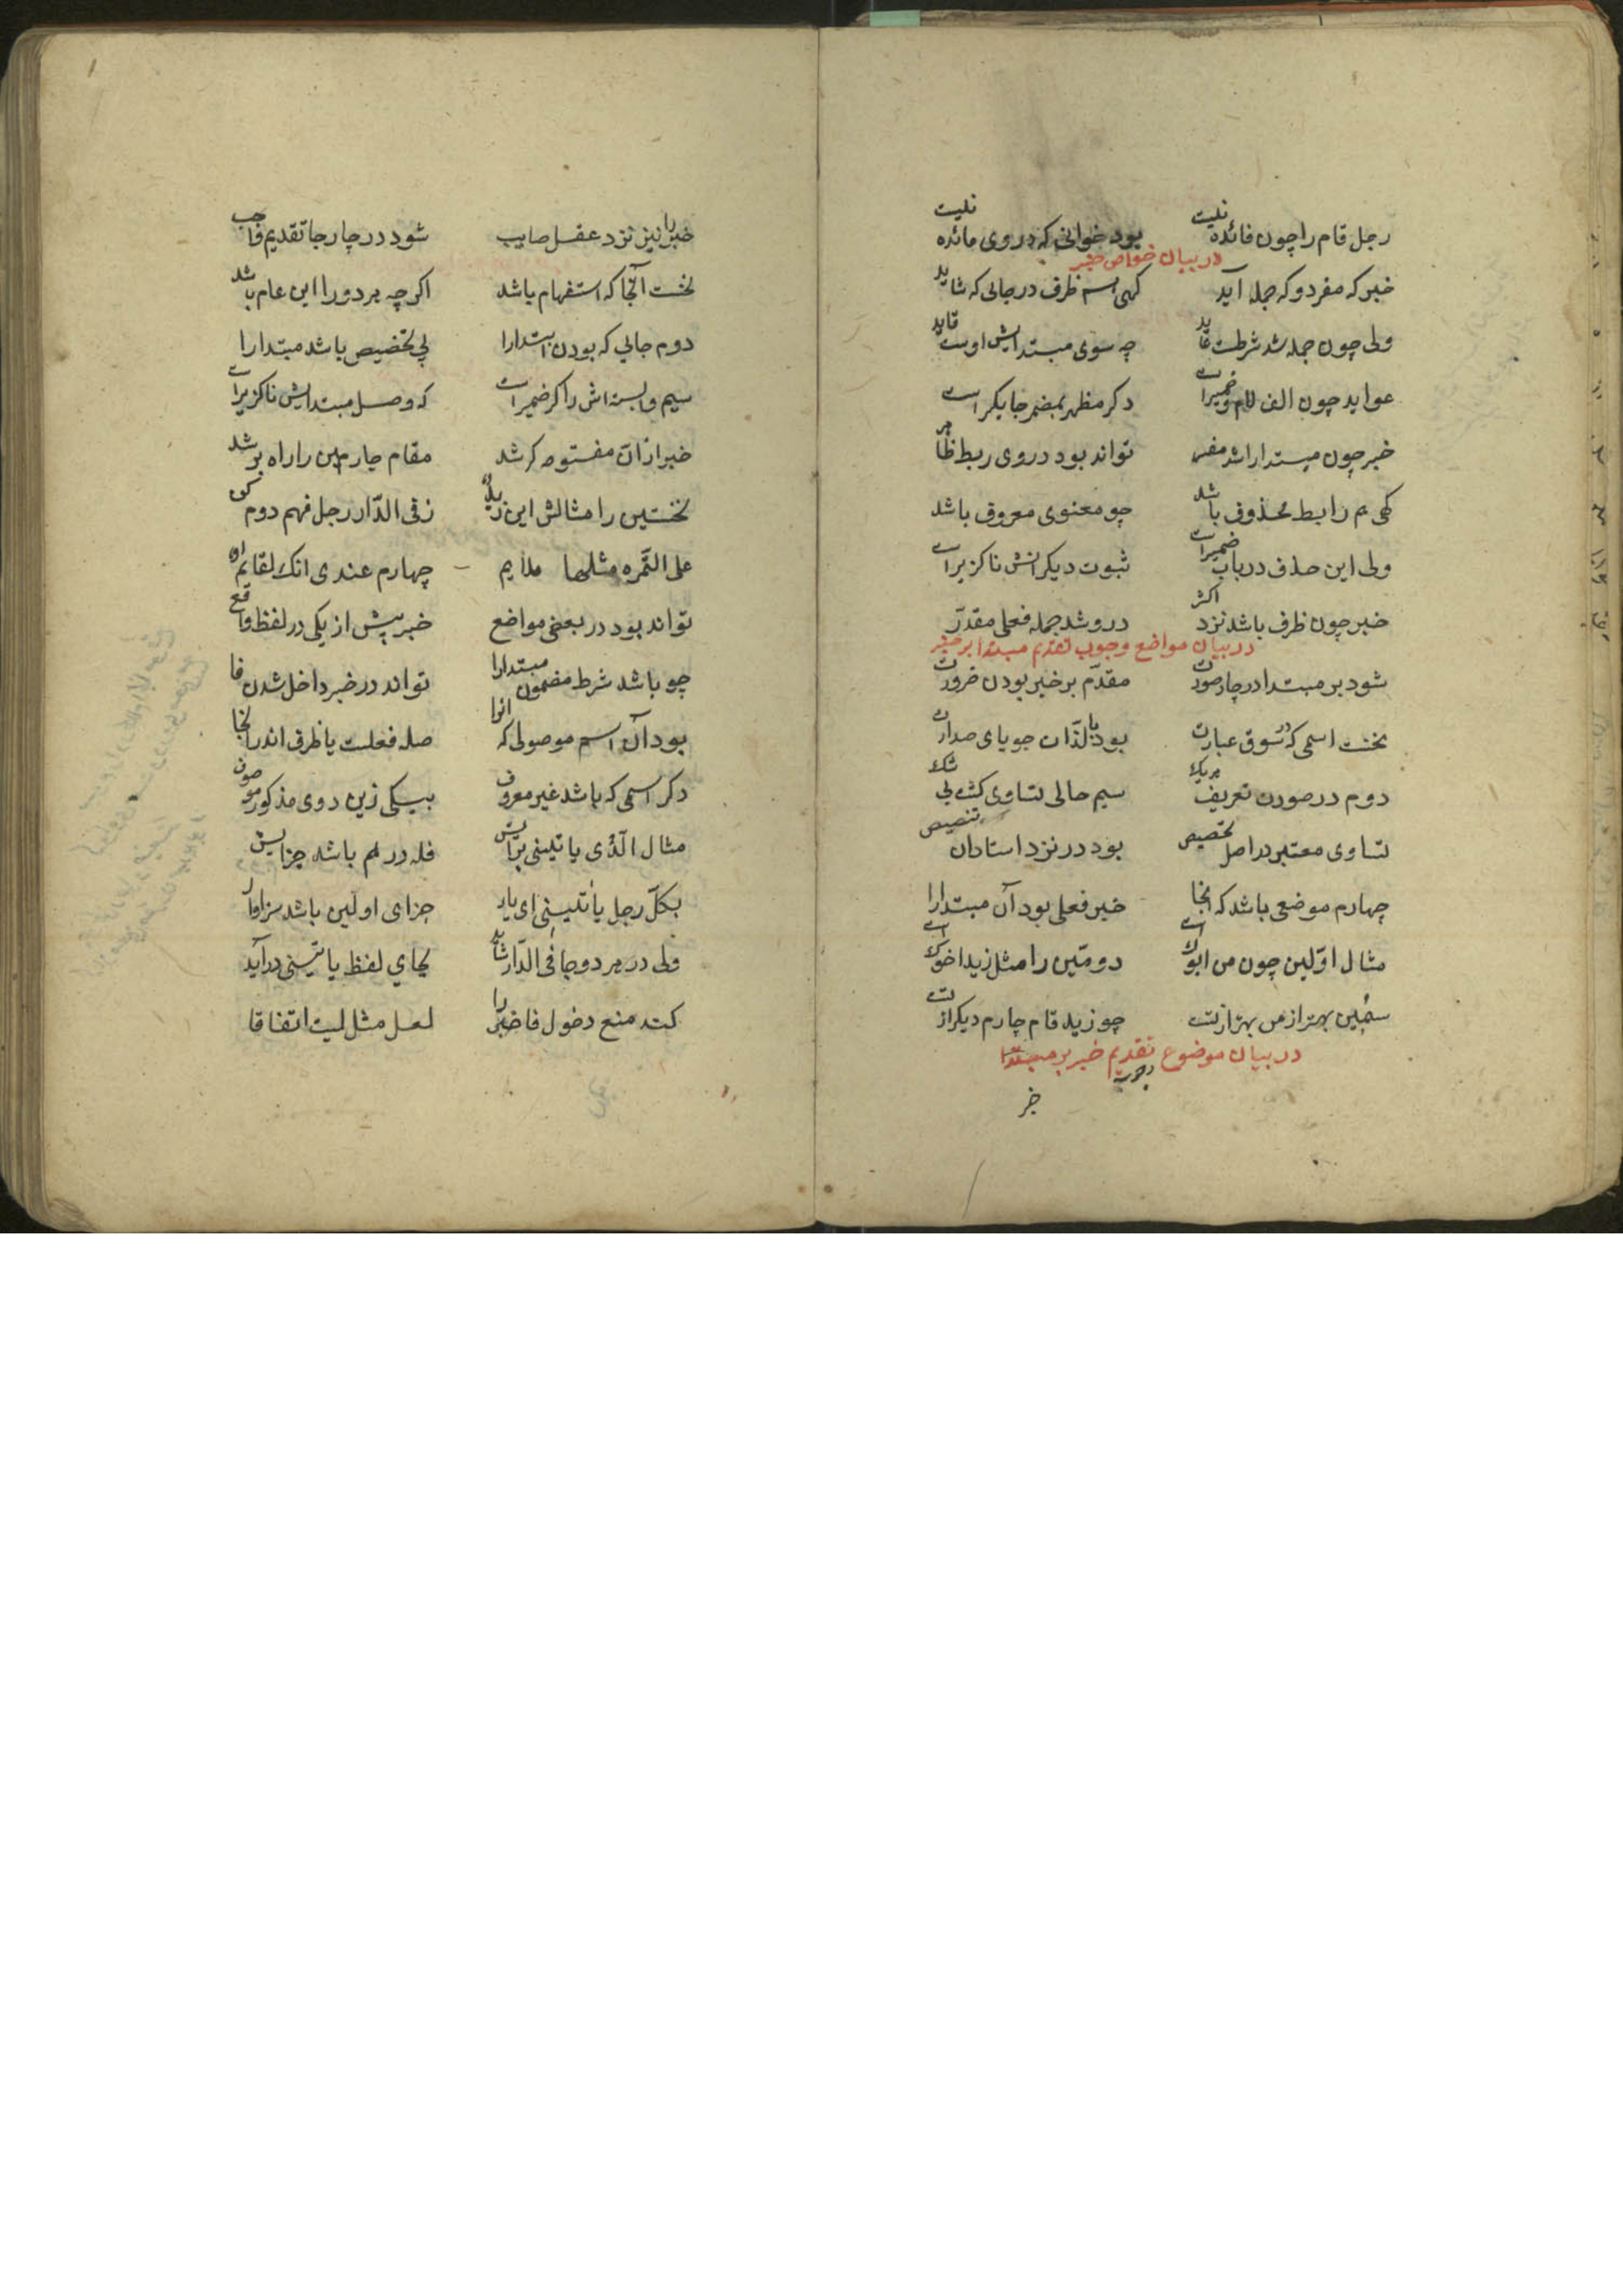 رجل قام را چون فائده نیست بود خوانی که در وی مائده نیست
در بیان خواص خبر
خبر که مفرد و که جمله آید کهی اسم ظرف در جائی که شاید
ولی چون جمله شد شرطست عاید چه سوی مبتدایش اوست قاید
عواید چون الف لام و ضمیرات دکر مظهر بمضمر جایکر است
خبر چون مبتدا را شد مفسر تواند بود در وی ربط ظاهر
کهی هم رابط محذوف باشد چو معنوی معروف باشد
ولی این حذف در باب ضمیرات ثبوت دیکرانش ناکزیرات
خبر چون ظرف باشد نزد اکثر درو شد جمله فعلی مقدر
در بیان مواضع وجوب تقدیم مبتدا بر خبر
شود بر مبتدا در چار صورت مقدّم بر خبر بودن ضرورت
نخست اسمی که در سوق عبارت بود بالذّات جویای صدارت
دوم در صورت تعریف هریک سیم حالی تساوی کشت بی شک
تساوی معتبر در اصل تخصیص بود در نزد استادان تنصیص
چهارم موضعی باشد که آنجا خبر فعلی بود آن مبتدا را
مثال اوّلین چون من ابوک است دومّین را مثل زید اخوک است
سیّمین بهتر از من بهتر از تست چو زید قام چارم دیکر از تست
در بیان موضوع تقدیم خبر بر مبتدا
وجوب
خبر
خبر را نیز نزد عقل صایب شود در چار جا تقدیم واجب
نخست آنجا که استفهام باشد اکرچه هر دو را این عام باشد
دوم جائی که بودن ابتدا را پی تخصیص باشد مبتدا را
سیم وابسته اش را کر ضمیرات که وصل مبتدایش ناکزیرات
خبر از انّ مفتوحه کر شد مقام چارمین را راه بر شد
نخستین را مثالش این زید ز فی الدّار رجل فهم دوم کن
علی التمره مثلها ملایم چهارم عندی انک لقایم
تواند بود در بعضی مواضع خبر پیش از یکی در لفظ واقع
چو باشد شرط مضمون مبتدا را تواند در خبر داخل شدن فا
بود آن اسم موصولی که انرا صله فعلست یا ظرف اندر آنجا
دکر اسمی که باشد غیر معروف بیکی زین دوی مذکور موصوف
مثال الّذی یاتینی براش فله درهم باشد جزایش
بکلّ رجل یأتینی ای یار جزای اولین باشد سزاوار
ولی در هر دو جا فی الدّار شاید بجای لفظ یاتینی درآید
کند منع دخول فا خبر را لعل مثل لیت اتفاقا